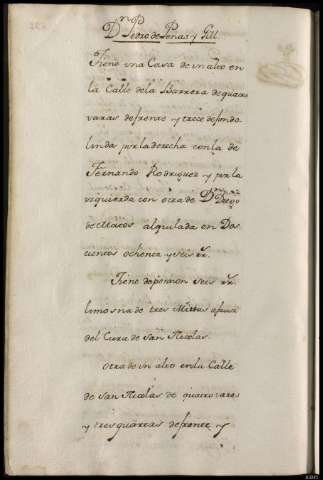 Dn. Pedro de Penas y Gill
Tiene una Casa de un alto en
la Calle de la Barrera de quatro
varas de frente y trece de fondo
linda por la derecha con la de
Fernando Rodriguez y por la
izquierda con otra de Dn. Diego
de Matos alquilada en Dos
cientos ochenta y seis rr.
Tiene de pension seis rr.
limosna de tres Missas a favor
del Cura de San Nicolas.
Otra de un alto en la Calle
de San Nicolas de quatro varas
y tres quartas de frente y